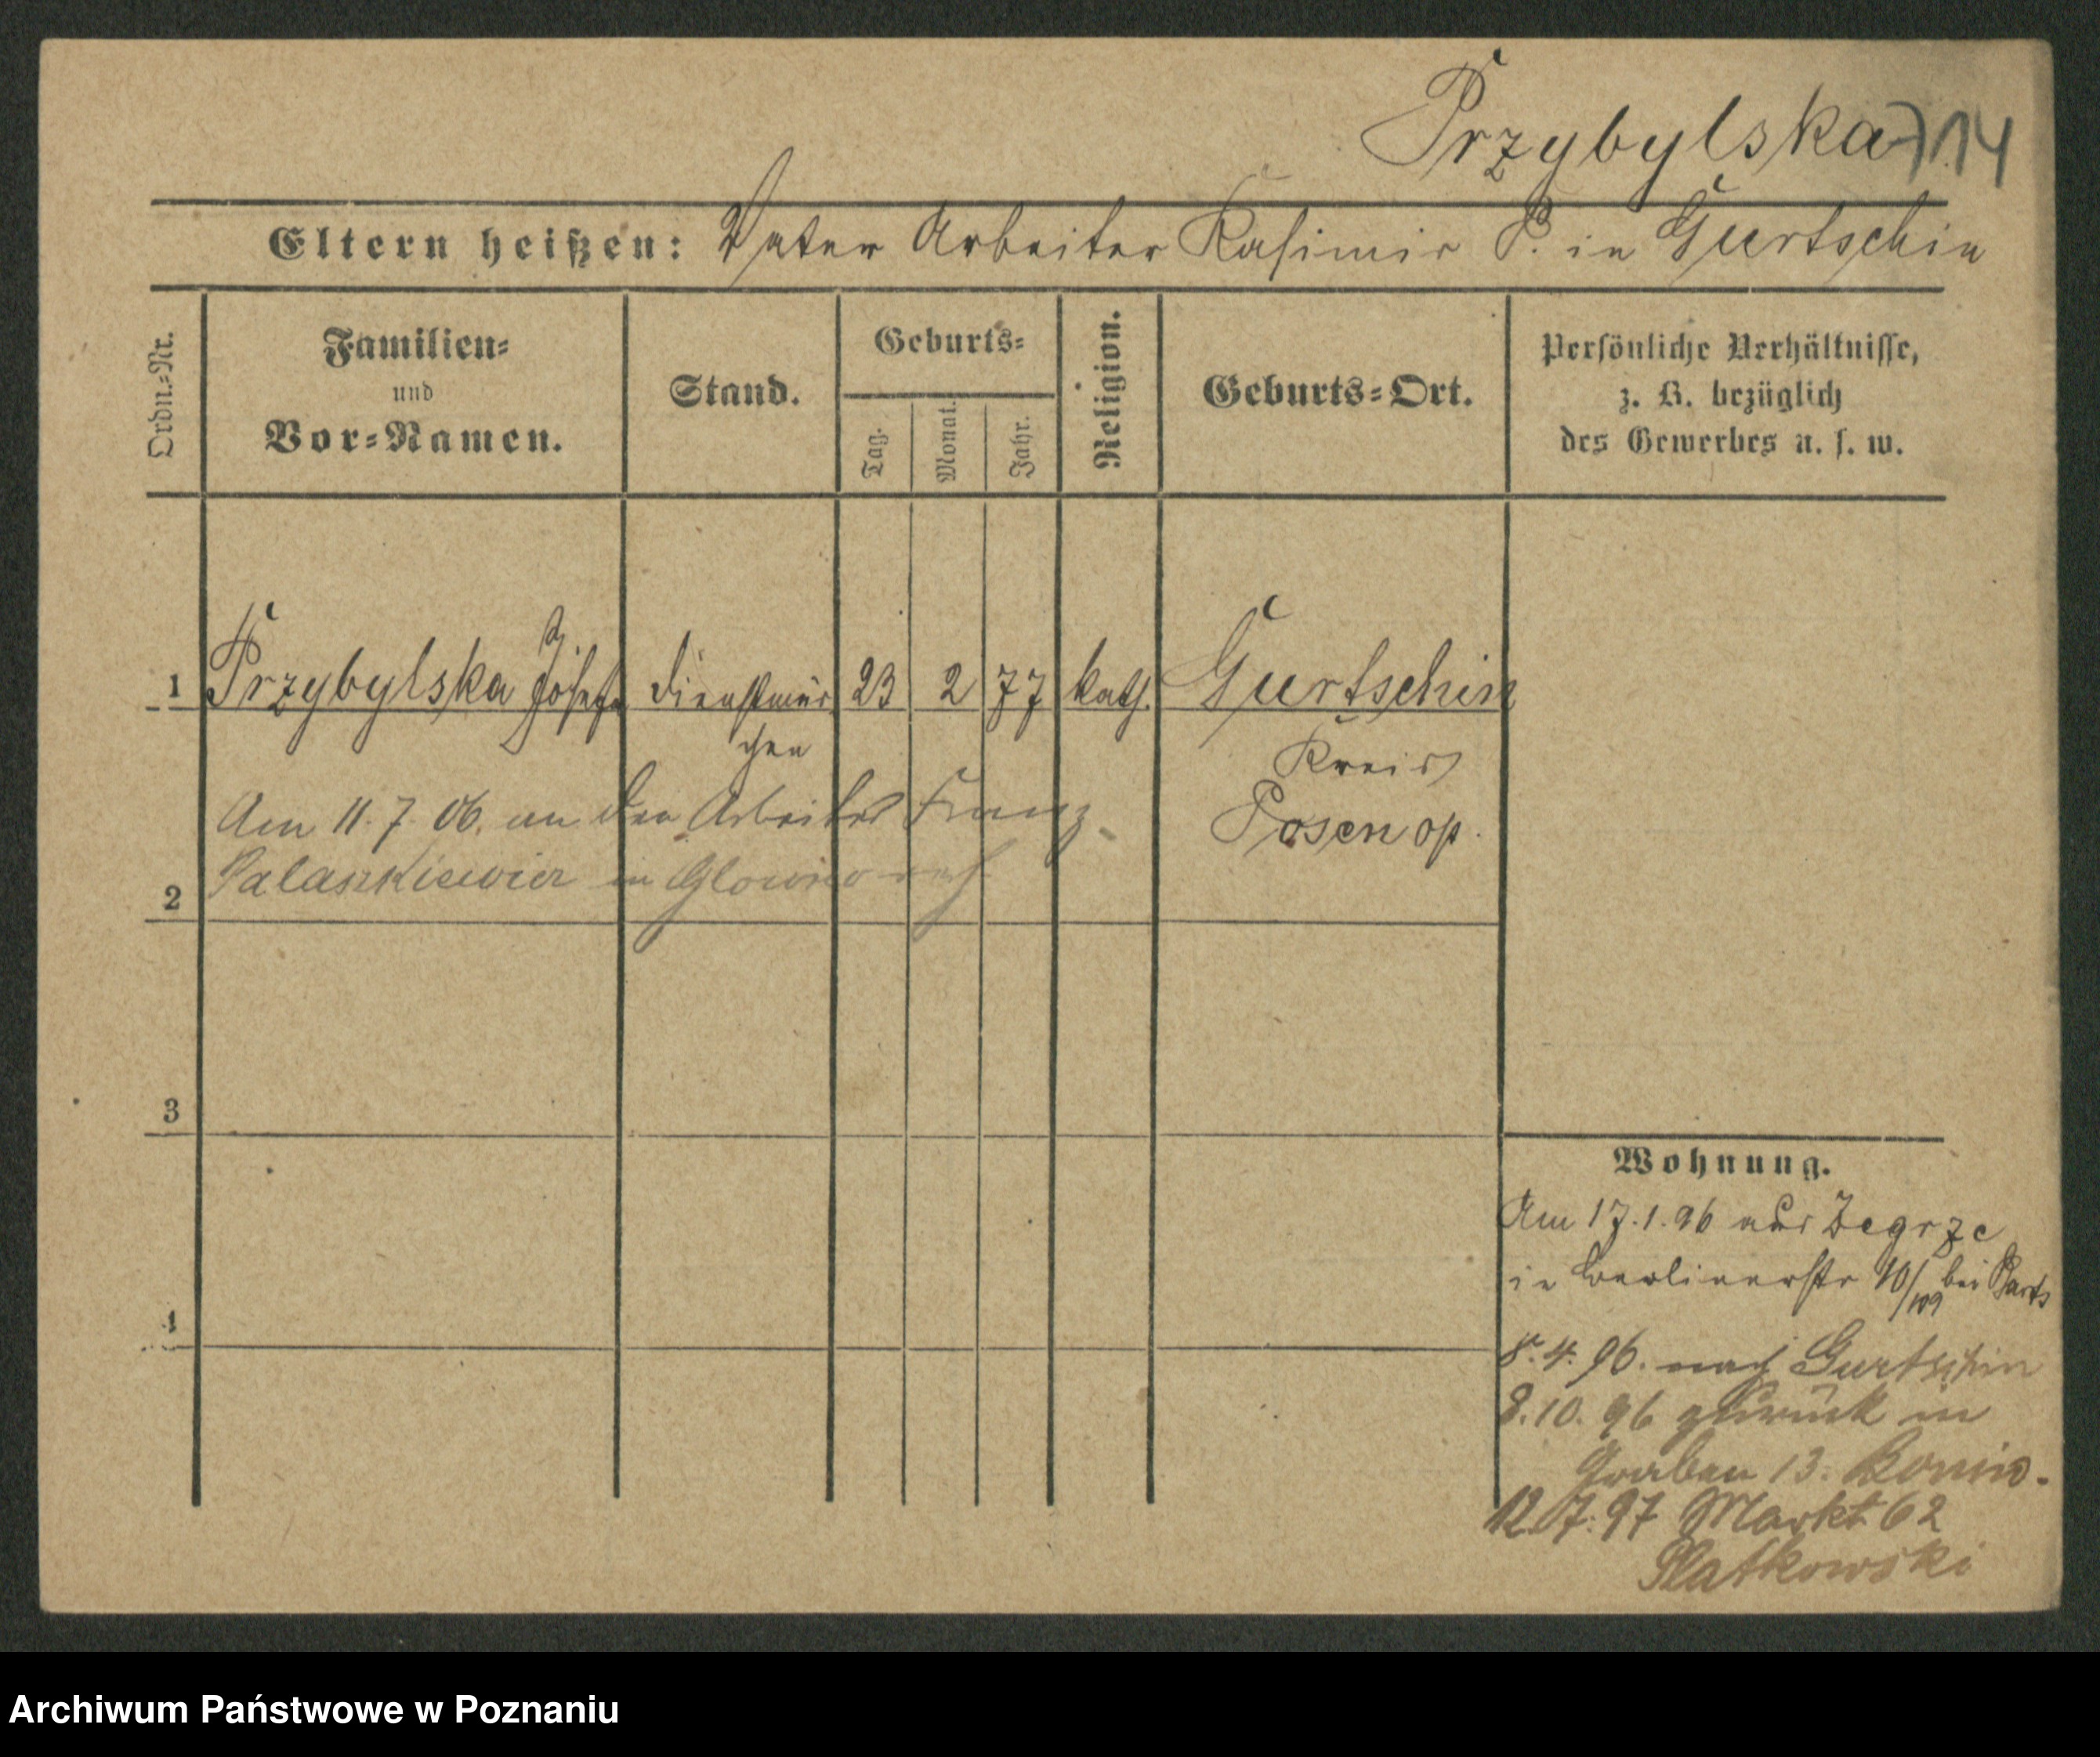 Przybylska 714
Eltern heißen: Vater Arbeiter Kasimir P. in Gurtschin
Ordn.-Nr.
Familien-
und
Vor-Namen.
Stand.
Geburts-
Tag.
Monat.
Jahr.
Religion.
Geburts-Ort.
Persönliche Verhältnisse,
z. B. bezüglich
des Gewerbes u. s. w.
1 Przybylska Josefa Dienstmäd 23 2 77 kath. Gurtschin
chen
Kreis
Posen op.
Am 11. 7. 06. an den Arbeiter Franz
2 in Glowno verh
3
4
Wohnung.
Am 17.1.96 aus Zegrze
in Berlinerstr 10/109 bei
8. 4. 96. nach Gurtschin
8. 10. 96 zurück in
Graben 13.
12. 7. 97 Markt 62
Slatkowski
Archiwum Państwowe w Poznaniu